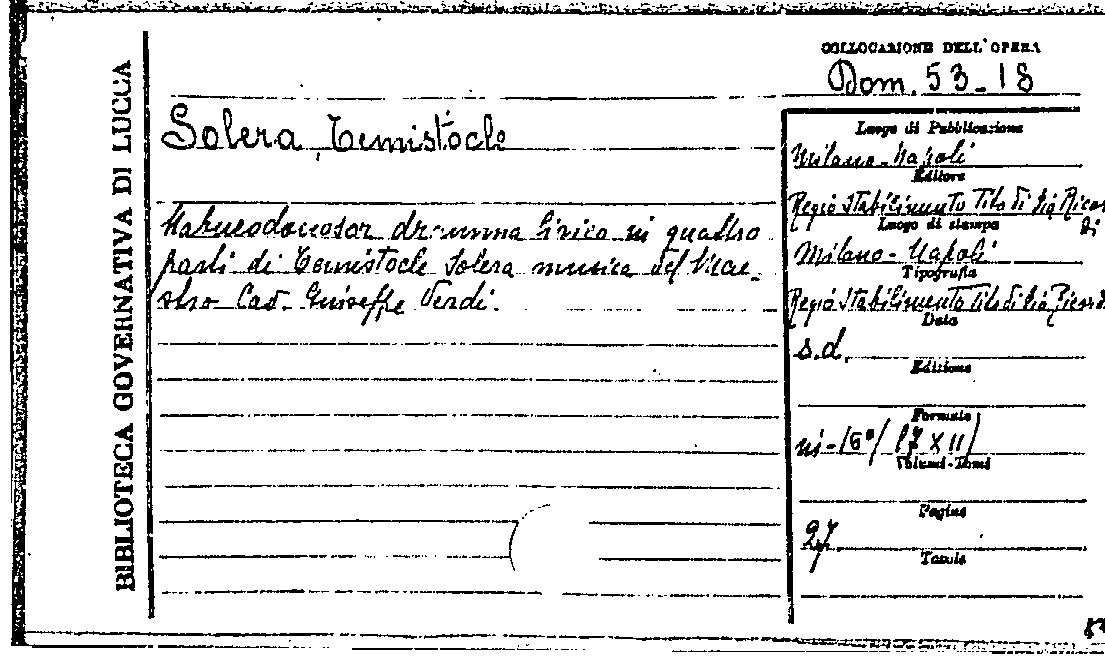 BIBLIOTECA GOVERNATIVA DI LUCCA
COLLOCAZIONE DELL'OPERA
Dom. 53-18
Solera, Temistocle
Nabucodonosor dramma lirico in quattro
parti di Temistocle Solera musica del Mae-
stro Cav. Giuseppe Verdi.
Luogo di Pubblicazione
Milano-Napoli
Editore
Regio Stabilimento Tito di Gio Ricor
di
Luogo di stampa
Milano-Napoli
Tipografia
Regio Stabilimento Tito di Gio Ricordi
Data
s.d.
Edizione
Formato
in-16°/17x11/
Volumi-Tomi
Pagine
27
Tavole